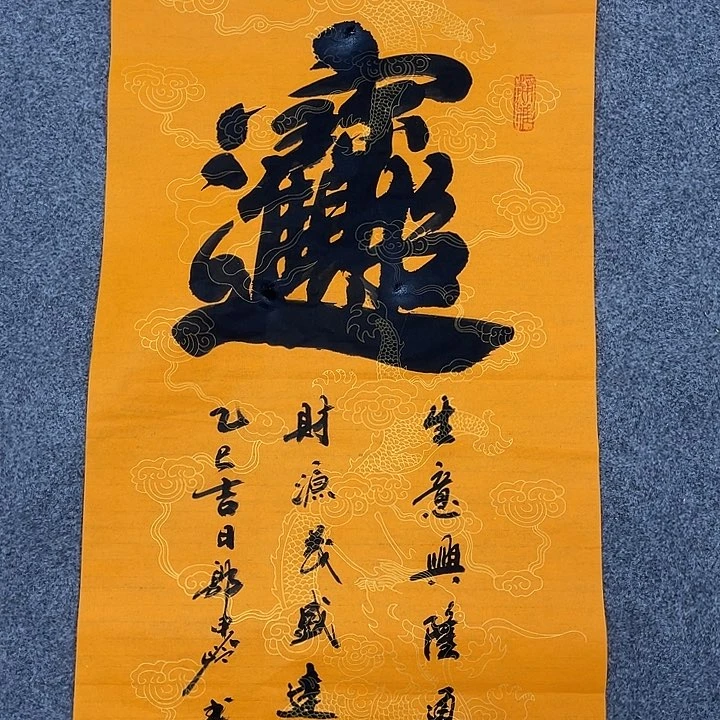 招財進寶
生意興隆通
財源茂盛達
乙巳吉日